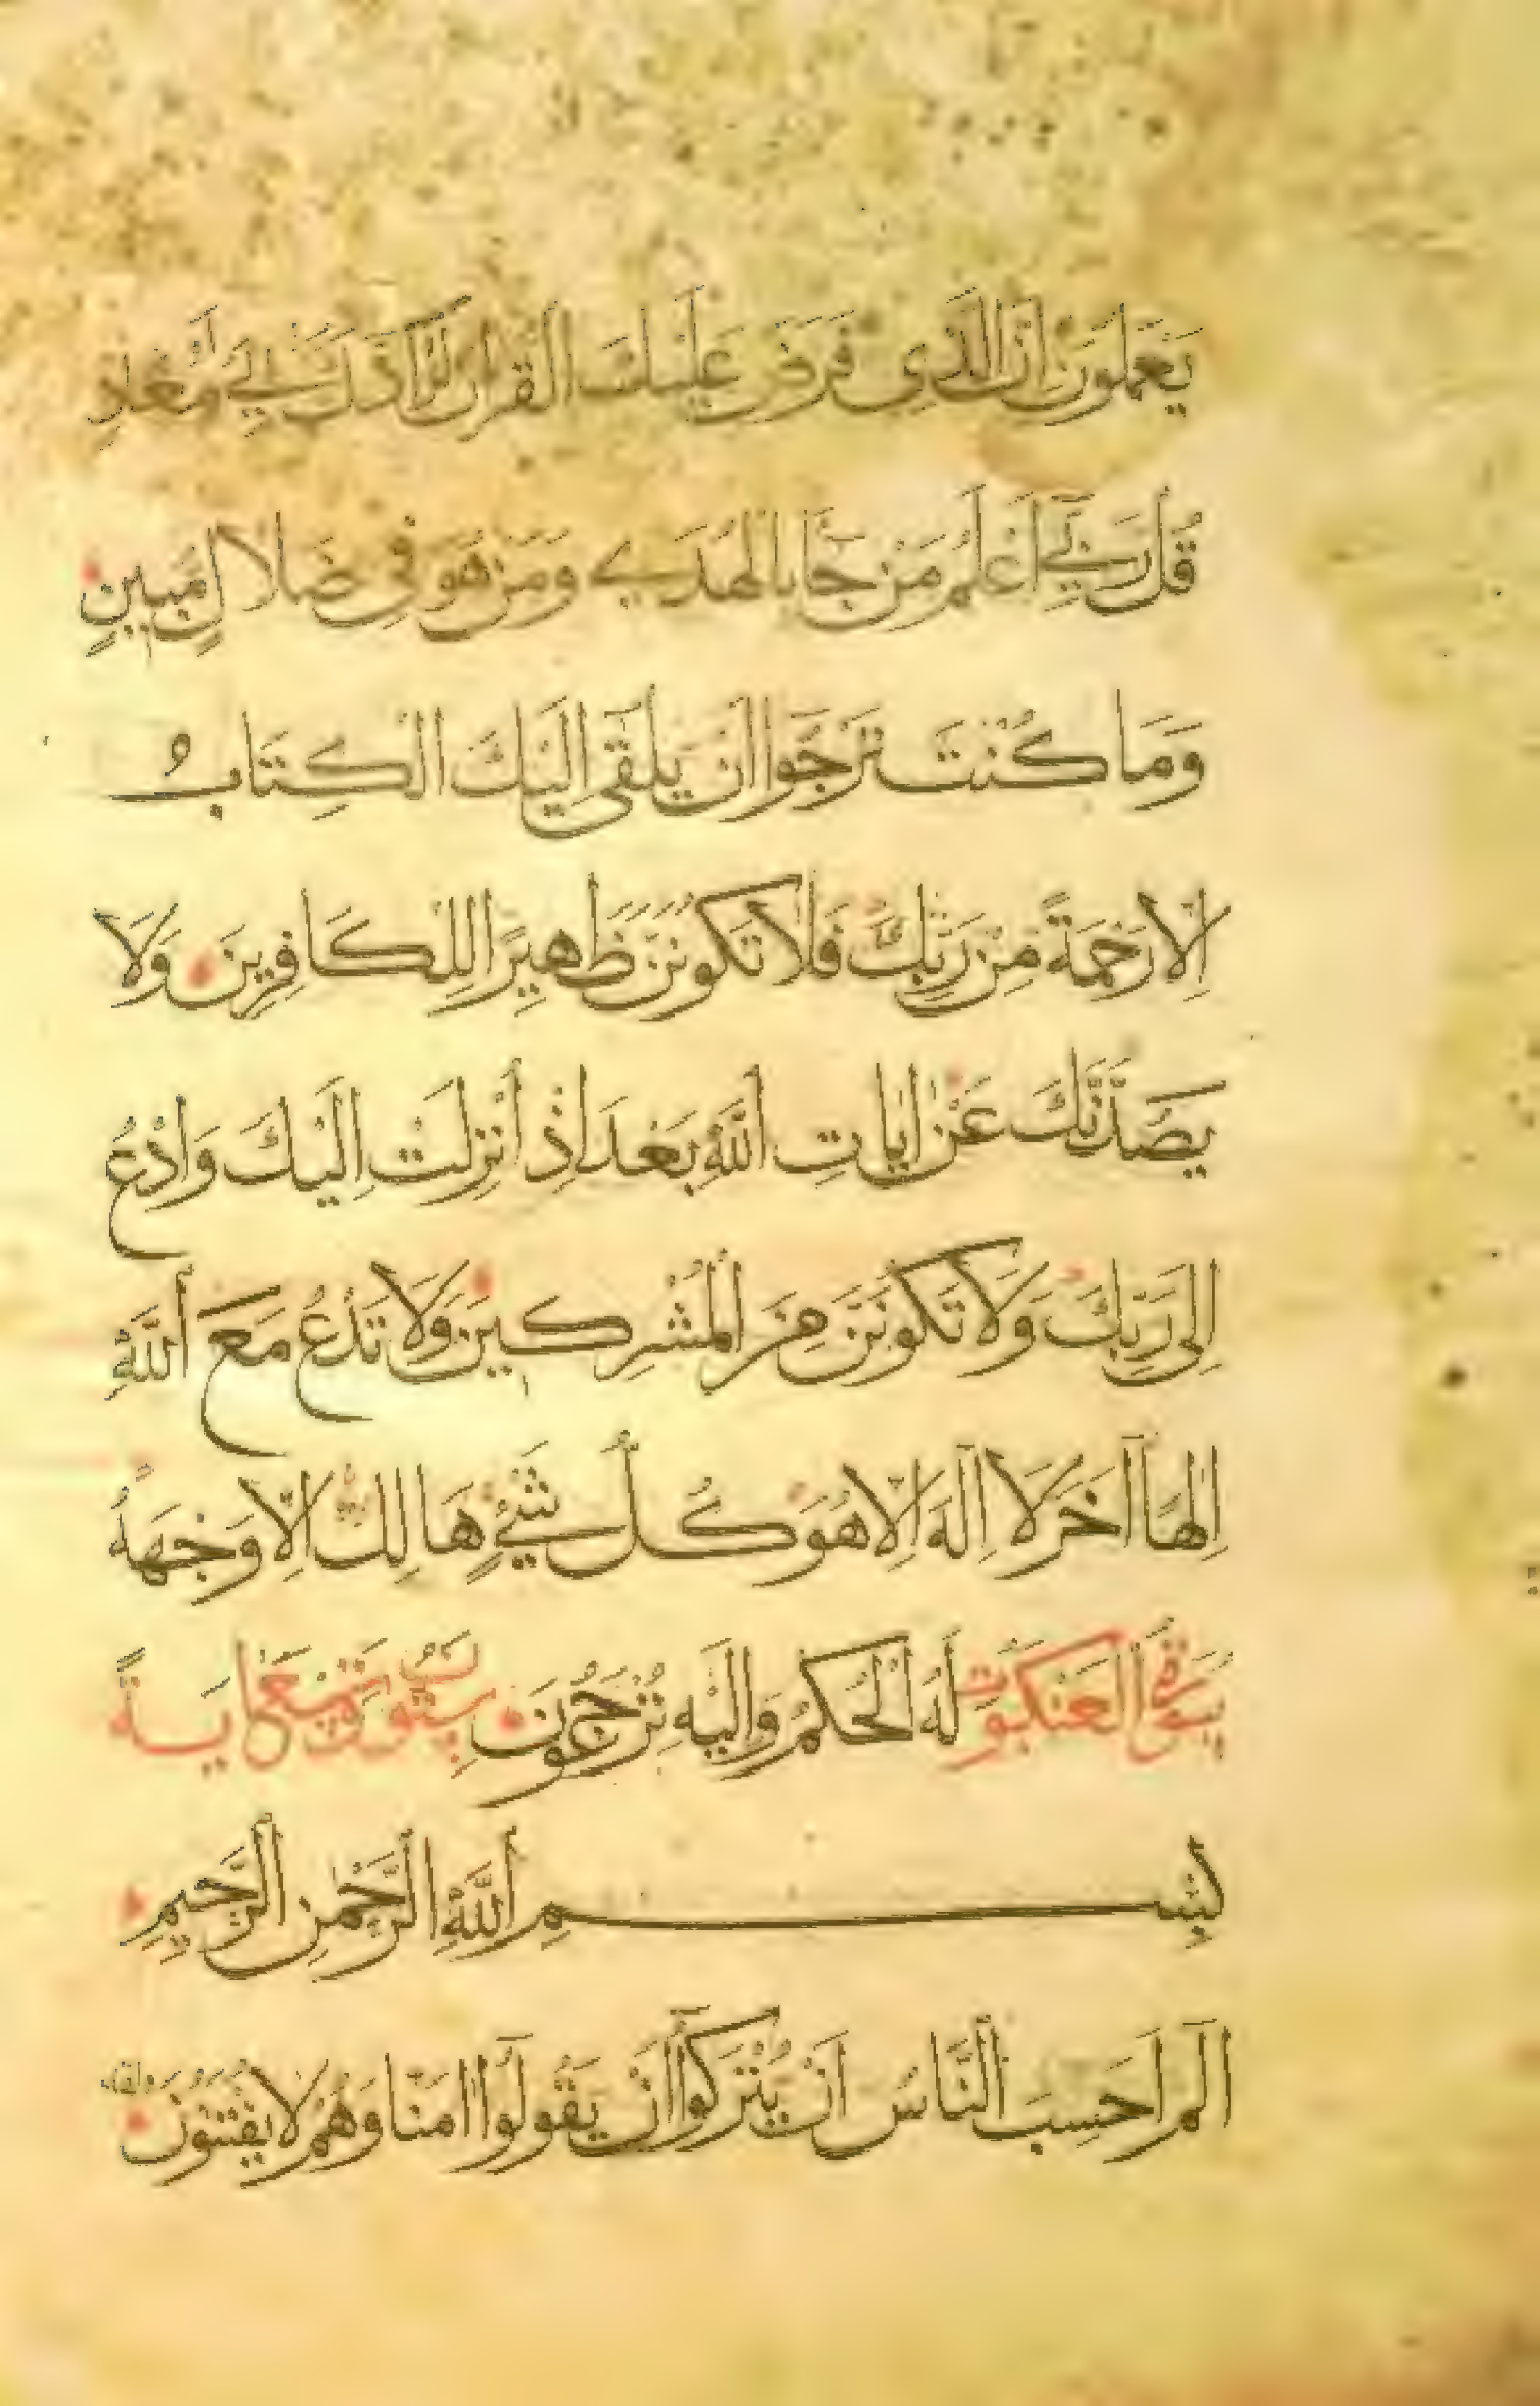 يَعْمَلُونَ اِنَّ الَّذِى فَرَضَ عَلَيْكَ الْقُرْانَ لَرَادُّكَ اِلَى مَعَادٍ
قُلْ رَبِّى اَعْلَمُ مَنْ جَا بِالْهُدَى وَمَنْ هُوَ فِى ضَلَالٍ مُبِينٍ
وَمَا كُنْتَ تَرْجَوا اَنْ يُلْقَى اِلَيْكَ الْكِتَابُ
اِلَّا رَحْمَةً مِنْ رَبِّكَ فَلَا تَكُونَنَّ ظَهِيرًا لِلْكَافِرِينَ وَلَا
يَصُدُّنَّكَ عَنْ ايَاتِ اللَّهِ بَعْدَ اِذْ اُنْزِلَتْ اِلَيْكَ وَادْعُ
اِلَى رَبِّكَ وَلَا تَكُونَنَّ مِنَ الْمُشْرِكِينَ وَلَا تَدْعُ مَعَ اللَّهِ
اِلٰهًا آخَرَ لَا اِلَهَ اِلَّا هُوَ كُلُّ شَىْءٍ هَالِكٌ اِلَّا وَجْهَهُ
سُورَةُ الْعَنْكَبُوتِ لَهُ الْحُكْمُ وَاِلَيْهِ تُرْجَعُونَ سِتُّونَ وَتِسْعُ ايَةً
بِسْمِ اللَّهِ الرَّحْمٰنِ الرَّحِيمِ
الٓمٓ اَحَسِبَ النَّاسُ اَنْ يُتْرَكُوا اَنْ يَقُولُوا امَنَّا وَهُمْ لَا يُفْتَنُونَ